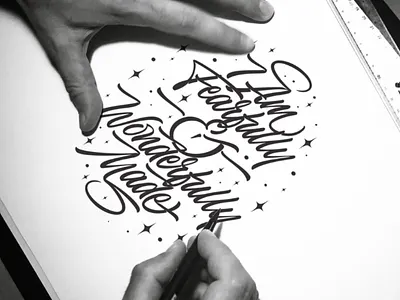 I Am
Fearfully
&
Wonderfully
Made